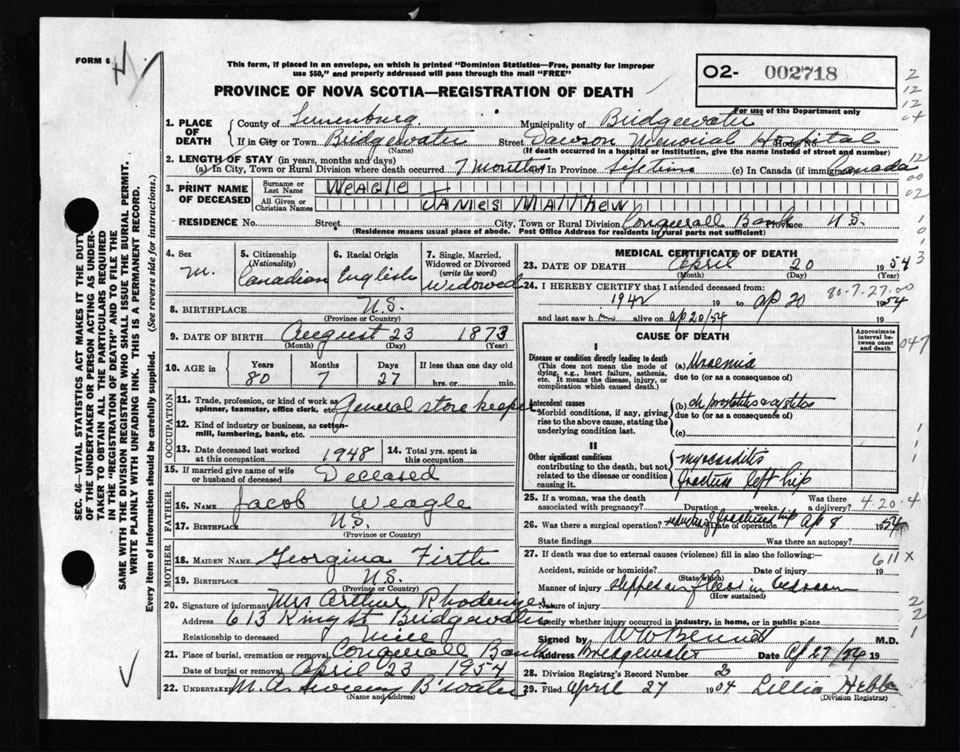 FORM 6
This form, if placed in an envelope, on which is printed "Dominion Statistics—Free, penalty for improper
use $50," and properly addressed will pass through the mail "FREE"
PROVINCE OF NOVA SCOTIA—REGISTRATION OF DEATH
O2- 002718
For use of the Department only
1. PLACE OF DEATH
County of Lunenburg Municipality of Bridgewater
If in City or Town Bridgewater Street Dawson Memorial Hospital House No.
(Name) (If death occurred in a hospital or institution, give the name instead of street and number)
2. LENGTH OF STAY (in years, months and days)
(a) In City, Town or Rural Division where death occurred 7 months In Province Lifetime (c) In Canada (if immigrant) Canada
3. PRINT NAME OF DECEASED
Surname or Last Name WEAGLE
All Given or Christian Names JAMES MATTHEW
RESIDENCE No. Street City, Town or Rural Division Conquerall Bank Province N.S.
(Residence means usual place of abode. Post Office Address for residents in rural parts not sufficient)
4. Sex M.
5. Citizenship (Nationality) Canadian
6. Racial Origin English
7. Single, Married, Widowed or Divorced (write the word) Widowed
8. BIRTHPLACE N.S.
(Province or Country)
9. DATE OF BIRTH August 23 1873
(Month) (Day) (Year)
10. AGE in Years 80 Months 7 Days 27 If less than one day old
hrs. or min.
OCCUPATION
11. Trade, profession, or kind of work as spinner, teamster, office clerk, etc. General store keeper
12. Kind of industry or business, as cotton-mill, lumbering, bank, etc.
13. Date deceased last worked at this occupation 1948
14. Total yrs. spent in this occupation
15. If married give name of wife or husband of deceased Deceased
FATHER
16. Name Jacob Weagle
17. Birthplace N.S.
(Province or Country)
MOTHER
18. MAIDEN NAME Georgina Firth
19. Birthplace N.S.
(Province or Country)
20. Signature of informant Mrs Arthur Rhodenizer
Address 613 King St Bridgewater
Relationship to deceased Niece
21. Place of burial, cremation or removal Conquerall Bank
Date of burial or removal April 23 1954
22. Undertaker M. A. Sweeny B'water
(Name and address)
MEDICAL CERTIFICATE OF DEATH
23. DATE OF DEATH April 20 1954
(Month) (Day) (Year)
24. I HEREBY CERTIFY that I attended deceased from: 80-7-27-00
1942 19 to ap 20 1954
and last saw h alive on ap 20/54 19
CAUSE OF DEATH
Approximate interval between onset and death
I
Disease or condition directly leading to death
(This does not mean the mode of dying, e.g., heart failure, asthenia, etc. It means the disease, injury, or complication which caused death.)
(a) Uraemia
due to (or as a consequence of)
Antecedent causes
Morbid conditions, if any, giving rise to the above cause, stating the underlying condition last.
(b) ch prostatitis & cystitis
due to (or as a consequence of)
(c)
II
Other significant conditions contributing to the death, but not related to the disease or condition causing it.
myocarditis
fracture left hip
25. If a woman, was the death associated with pregnancy? Duration weeks. Was there a delivery?
4-20-4
26. Was there a surgical operation? reduction of fractured hip Date of operation ap 8 1954
State findings Was there an autopsy?
27. If death was due to external causes (violence) fill in also the following:—
Accident, suicide or homicide? Date of injury 19
(State which)
Manner of injury slipped on floor in bedroom
(How sustained)
Nature of injury
Specify whether injury occurred in industry, in home, or in public place
Signed by W W Bennett M.D.
Address Bridgewater Date Ap 27/54 19
28. Division Registrar's Record Number
29. Filed April 27 1954 Lillia Hebb
(Division Registrar)
SEC. 46—VITAL STATISTICS ACT MAKES IT THE DUTY
OF THE UNDERTAKER OR PERSON ACTING AS UNDER-
TAKER TO OBTAIN ALL THE PARTICULARS REQUIRED
IN THE "REGISTRATION OF DEATH" AND TO FILE THE
SAME WITH THE DIVISION REGISTRAR WHO SHALL ISSUE THE BURIAL PERMIT.
WRITE PLAINLY WITH UNFADING INK. THIS IS A PERMANENT RECORD.
Every item of information should be carefully supplied. (See reverse side for instructions.)
2
12
12
04
12
00
02
1
0
1
3
047
1
1
611 X
2
2
1